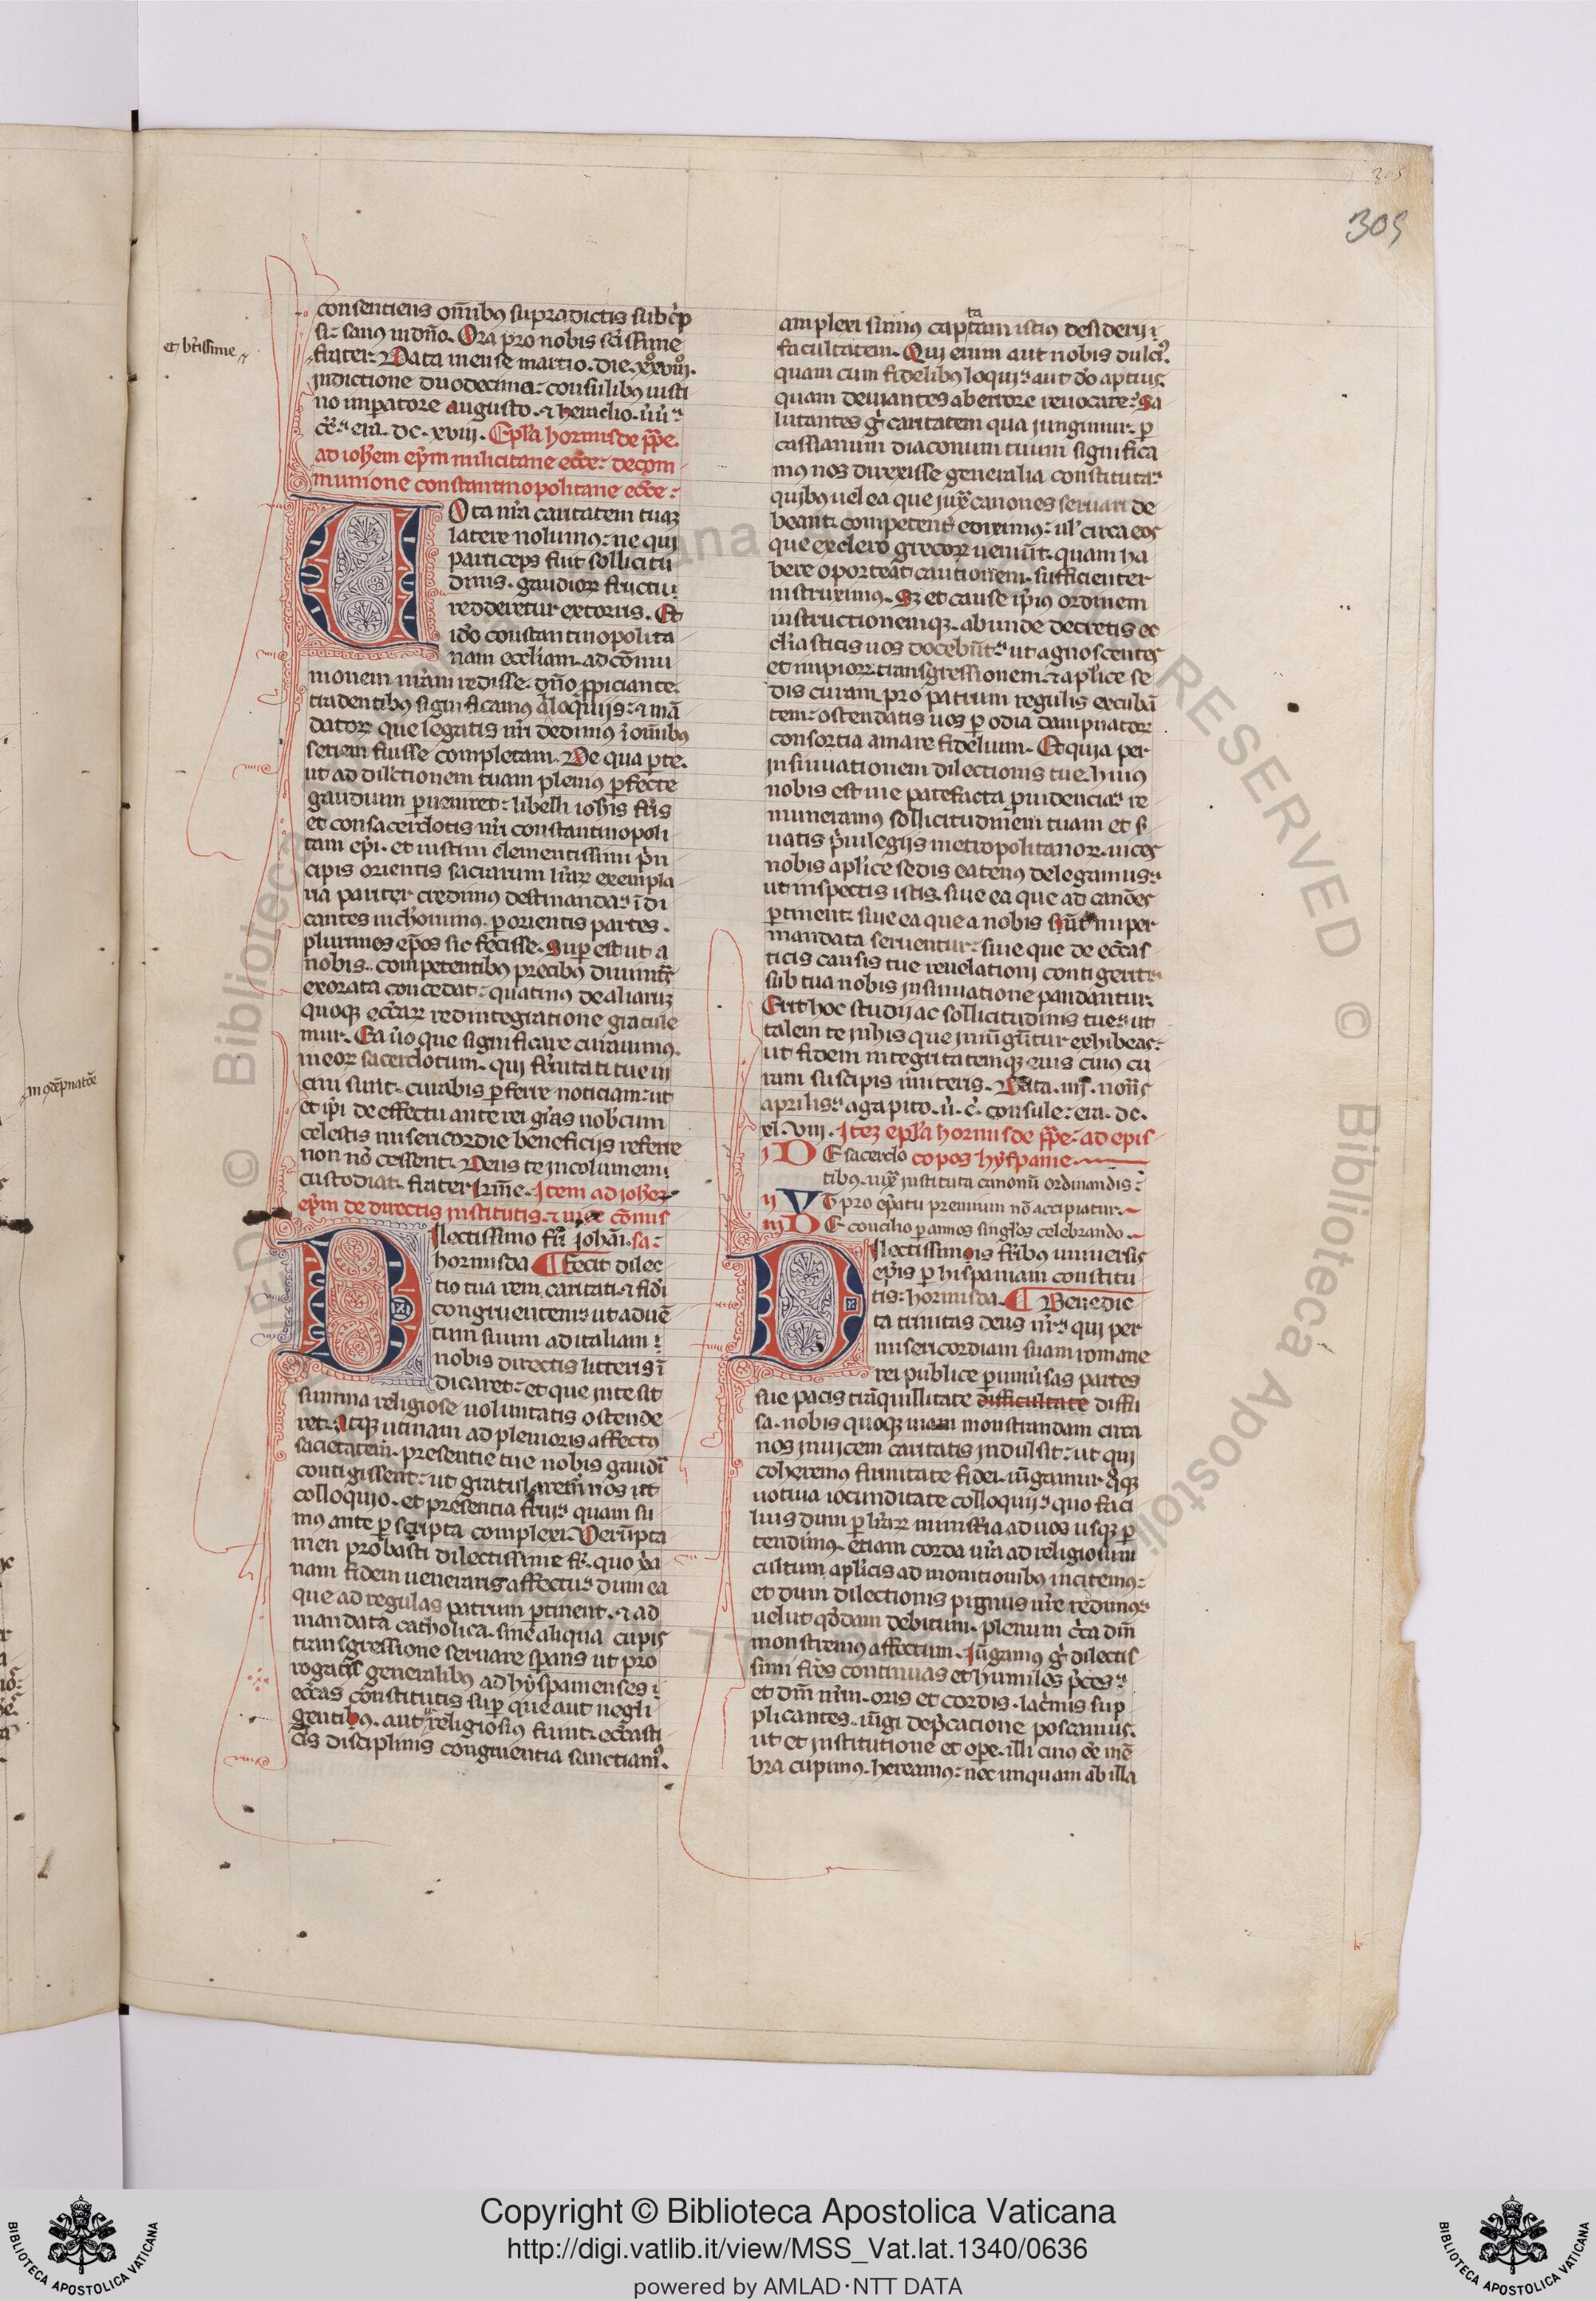 305
consentiens om̄ibꝰ supradictis subc̄p
si: sanus in dn̄o. Ora pro nobis sc̄issime
frater: Data mense martio. die. xxviii.
indictione duodecima: consulibꝰ iusti
no imperatore augusto. ⁊ heraclio.
era. dc. xviii. Epl̄a hormisde pp̄e.
ad ioh̄em ep̄m milicitane ecc̄e: de com
munione constantinopolitane ecc̄e:
et btissime
Ota nr̄a caritatem tuaꝫ
latere nolumꝰ: ne qui
particeps fuit sollicitu
dinis. gaudioꝝ fructu
redderetur extorris. Et
ido constantinopolita
nam eccl̄iam. ad cōmu
nionem nr̄am redisse. dn̄o ꝓpiciante.
tradentibꝰ significamꝰ aloquijs: ⁊ mā
datoꝝ que legatis nr̄i dedimꝰ ī om̄ibꝰ
seriem fuisse completam. De qua ꝑte.
ut ad dilectionem tuam plenius ꝑfecte
gaudium ꝑueniret: libelli ioh̄is fr̄is
et consacerdotis nr̄i constantinopoli
tam ep̄i. et iustini clementissimi prin
cipis orientis sacrarum lr̄aꝝ exempla
ria pariter credimus destinanda: īdi
cantes inchonimus. ꝑ orientis partes.
plurimos ep̄os sic fecisse. Suꝑ est ut a
nobis. competentibꝰ precibꝰ diuinitas
exorata concedat: quatinus de aliaruꝫ
quoqꝫ ecc̄aꝝ redintegratione gratule
mur. Ea ūo que significare curauimꝰ.
meoꝝ sacerdotum. qui fr̄nitati tue ui
cini sunt. curabis ꝑferre noticiam: ut
et ip̄i de effectu ante rei gr̄as nob̄cum
celestis misericordie beneficijs referre
non nō cessent. Deus te incolumem
custodiat. frater kr̄me. Item ad joh̄eꝫ
ep̄m de directis institutis. ⁊ uice cōmis
Ilectissimo fr̄i johāi. sa:
hormisda. Fecit dilec
tio tua rem caritati. ⁊ fidi
congruentem: ut aduē
tum suum ad italiam:
nobis directis litteris ī
dicaret: et que in te sit
summa religiose uoluntatis ostende
ret. Atqꝫ utinam ad plenioris affectꝰ
sacietatem. presentie tue nobis gaudi
contigissent: ut gratularem̄ nos ut
colloquio. et presentia frui: quam su
mꝰ ante ꝑ scripta complexi. Uerūpta
men probasti dilectissime fr̄. quo xp̄a
nam fidem ueneraris affectu: dum ea
que ad regulas patrum ꝑtinent. ⁊ ad
mandata catholica. sine aliqua cupis
transgressione seruare sperans ut pro
rogatis generalibus ad hyspanienses:
ecc̄as constitutis suꝑ que aut negli
gentibꝰ. aut religiosius fiunt. ecc̄asti
cis disciplinis congruentia sanctiamꝰ.
amplexi simus captam istius desiderij:
ta
facultatem. Qui enim aut nobis dulciꝰ.
quam cum fidelibꝰ loqui: aut do aptius
quam deuiantes ab errore reuocare: Sa
lutantes g̊ caritatem qua jungimur. ꝑ
cassianum diaconum tuum significa
mus nos direxisse generalia constituta:
quibꝰ uel ea que juxᷓ canones seruari de
beant. competenti eoiximꝰ: ul̄ circa eos
que ex clero grecoꝝ ueniūt. quam ha
bere oporteat cautionem. sufficienter
instruximus. Sꝫ et cause ip̄ius ordinem
instructionemqꝫ. abunde decretis ec
cl̄iasticis uos docebūt: ut agnoscentes
et impioꝝ transgressionem. ⁊ aplice se
dis curam pro patrum regulis excubā
tem: ostendatis uos ꝑ odia dampnatoꝝ
consortia amare fidelium. Et quia per
insinuationem dilectionis tue. huius
nobis est uie patefacta ꝓuidencia: re
muneramꝰ sollicitudinem tuam et s̄
uatis ꝓuilegijs metropolitanoꝝ. uices
nobis aplice sedis eatenꝰ delegamus:
ut inspectis istis. siue ea que ad canōes
ꝑtinent: siue ea que a nobis s̄ūt nuper
mandata seruentur: siue que de ecc̄as
ticis causis tue reuelationi contigerit:
sub tua nobis insinuatione pandantur.
Erit hoc studij ac sollicitudinis tue: ut
talem te inhis que iniūgūtur exhibeas:
ut fidem integritatemqꝫ eius cuius cu
ram suscipis imiteris. Data. iiij. nonis
aprilis: agapito. u̇. c̄. consule: era. dc.
xl. viii. Iteꝫ epl̄a hormisde pp̄e: ad epis
copos hyspanie
j DE sacerdo
tibus. iuxᷓ instituta canonū ordinandis:
ij UT pro ep̄atu premium nō accipiatur.
iij DE concilio ꝑ annos singl̄os celebrando.
Ilectissimis fr̄ibus uniuersis
ep̄is ꝑ hispaniam constitu
tis: hormisda. Benedic
ta trinitas deus nr̄: qui per
misericordiam suam romane
rei publice ꝑ uniūsas partes
sue pacis trāquillitate difficultate diffu
sa. nobis quoqꝫ uiam monstrandam circa
nos inuicem caritatis indulsit: ut qui
coheremꝰ firmitate fidei. iūgamur qꝫ
uotiua iocunditate colloquij: quo faci
lius dum ꝑ lr̄aꝝ ministria ad uos usqꝫ ꝑ
tendimꝰ. etiam corda ur̄a ad religiosum
cultum aplicis ad monitionibꝰ incitemꝰ:
et dum dilectionis pignus ur̄e redimꝰ
uelut q̊dam debitum. plenum c̄ca dm̄
monstremus affectum. Iūgamus g̊ dilectis
simi fr̄es continuas et humiles p̄ces:
et dm̄ nr̄m. oris et cordis. lac̄mis sup
plicantes. iūgi dep̄catione poscamus.
ut et institutione et ope. illi cuius ēē mē
bra cupimꝰ. hereamꝰ: nec unquam ab illa
Copyright © Biblioteca Apostolica Vaticana
http://digi.vatlib.it/view/MSS_Vat.lat.1340/0636
powered by AMLAD·NTT DATA
BIBLIOTECA APOSTOLICA VATICANA
BIBLIOTECA APOSTOLICA VATICANA